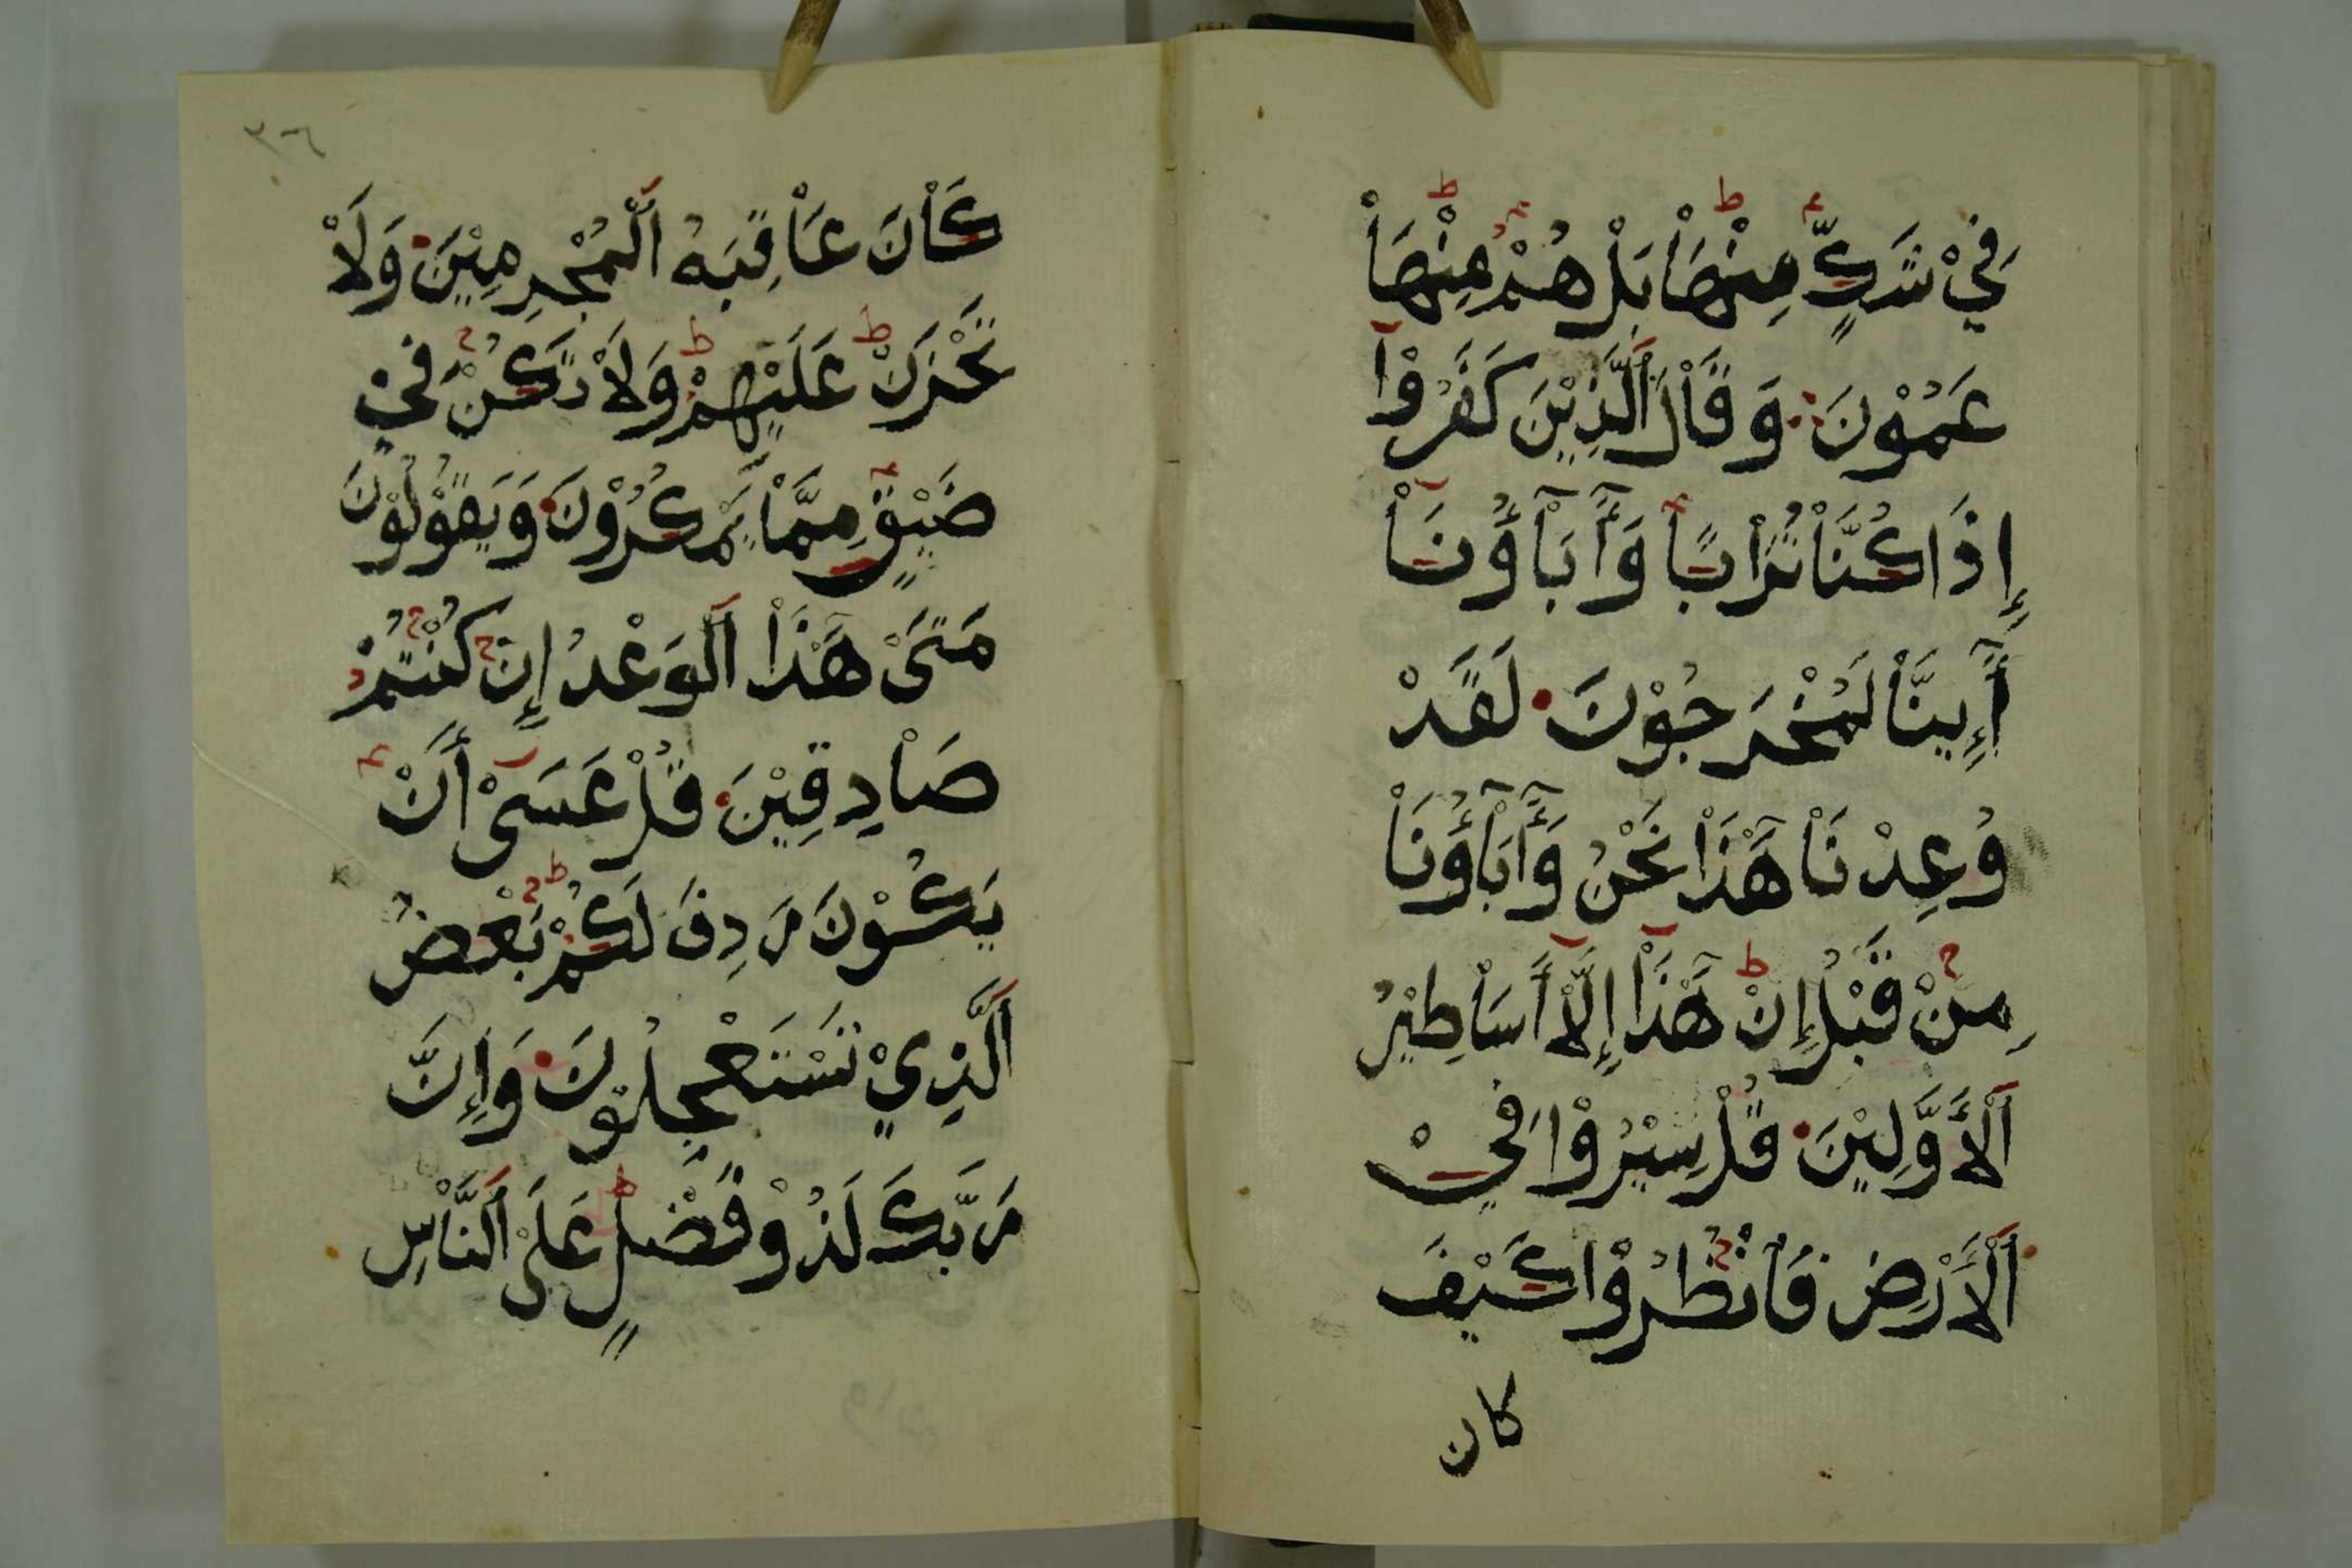 فِيْ شَكٍّ مِنْهَاْ بَلْ هُمْ مِنْهَاْ
عَمُوْنَ وَقَاْلَ اَلَّذِيْنَ كَفَرُوْآ
إِذَا كُنَّاْ تُرَاْبًا وَأَٓبَآؤُنَاْ
أَٓإِينَّاْ لَمُخْرَجُوْنَ لَقَدْ
وُعِدْنَاْ هَٓذَاْ نَحْنُ وَأَٓبَآؤُنَاْ
مِنْ قَبْلُ إِنْ هَٓذَاْ إِلَّاْ أَسَاْطِيْرُ
اَلْأَوَّلِيْنَ قُلْ سِيْرُوْا فِيْ
اَلْأَرْضِ فَاْنْظُرُوْا كَيْفَ
كان
٣٦
كَاْنَ عَاْقِبَةُ اَلْمُجْرِمِيْنَ وَلَاْ
تَحْزَنْ عَلَيْهِمْ وَلَاْ تَكُنْ فِيْ
ضَيْقٍ مِمَّاْ يَمْكُرُوْنَ وَيَقُوْلُوْنَ
مَتَىْ هَٓذَاْ اَلْوَعْدُ إِنْ كُنْتُمْ
صَاْدِقِيْنَ قُلْ عَسَىْ أَنْ
يَكُوْنَ رَدِفَ لَكُمْ بَعْضُ
اَلَّذِيْ تَسْتَعْجِلُوْنَ وَإِنَّ
رَبَّكَ لَذُوْ فَضْلٍ عَلَىْ اَلنَّاْسِ